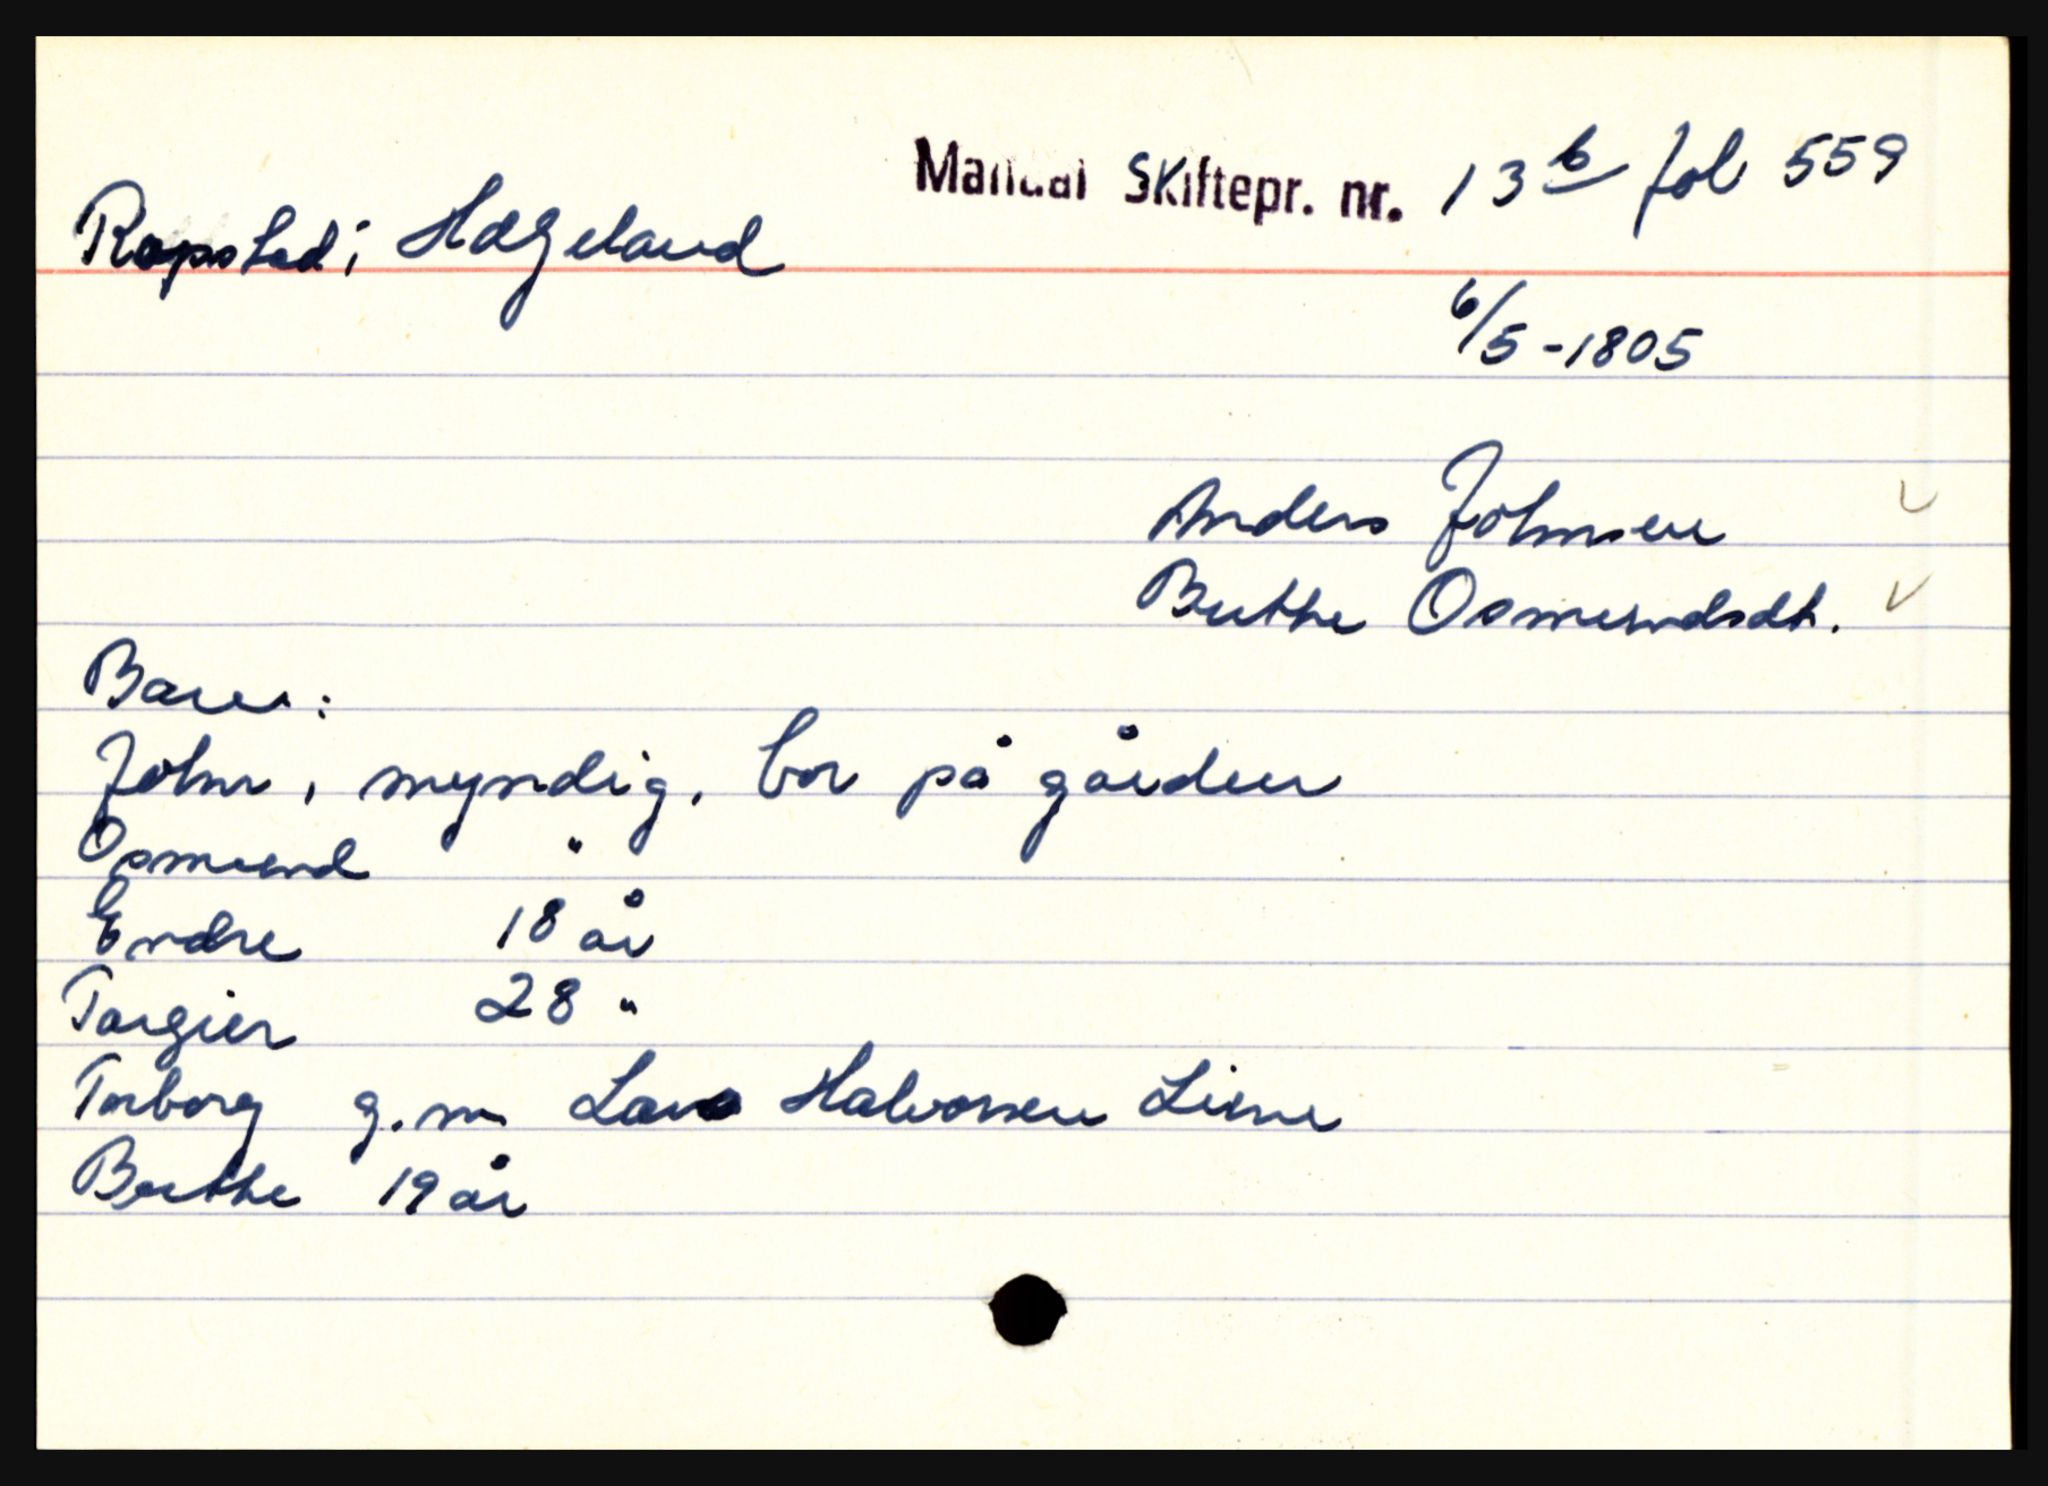 Manual Skiftepr. nr. 13 b fol 559
Ropstad i Hægeland
6/5 - 1805
Anders Johnsen
Berthe Osmundsdt.
Barn:
John, myndig, bor på gården
Osmund "
Endre 18 år
Targier 28 "
Torborg g.m. Lars Halvorsen Liene
Berthe 19 år